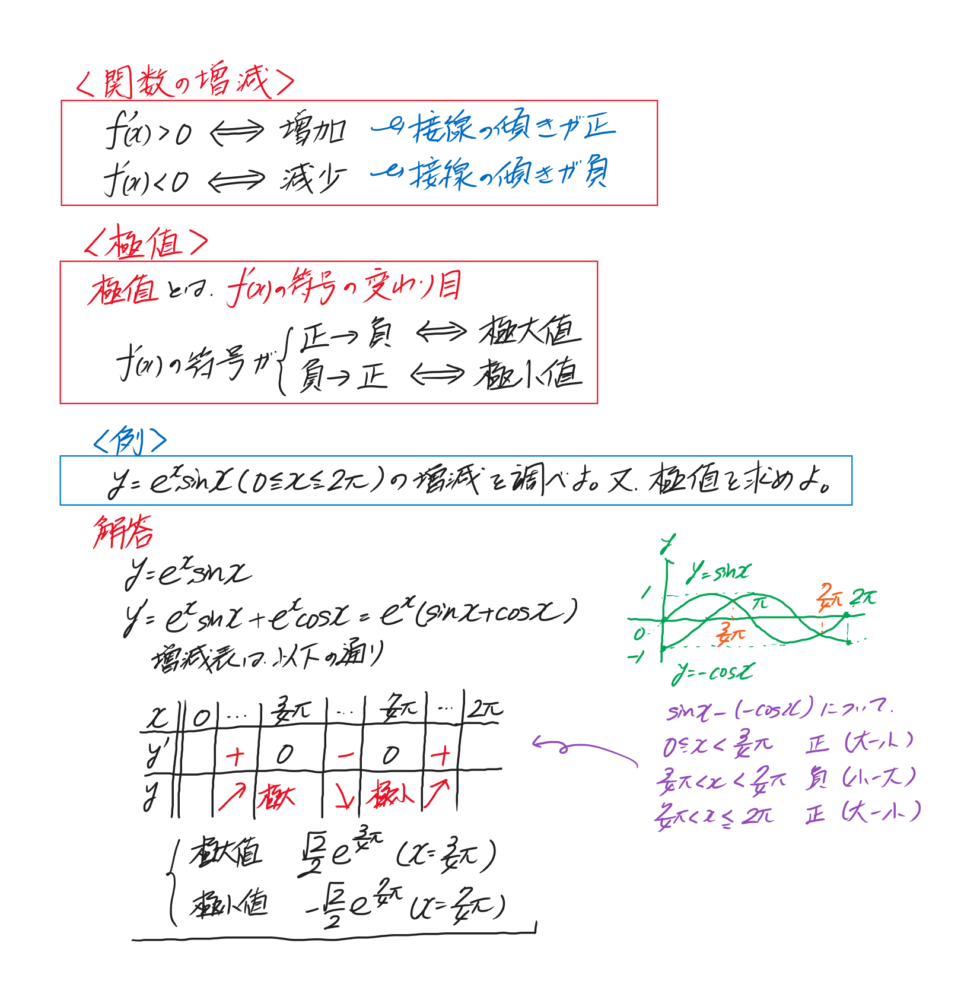 <関数の増減>
f'(x)>0 ⟺ 増加 → 接線の傾きが正
f'(x)<0 ⟺ 減少 → 接線の傾きが負
<極値>
極値とは、f'(x)の符号の変わり目
f'(x)の符号が{正→負 ⟺ 極大値
負→正 ⟺ 極小値
<例>
y=e^x sinx (0≦x≦2π)の増減を調べよ。又、極値を求めよ。
解答
y=e^x sinx
y'=e^x sinx+e^x cosx=e^x(sinx+cosx)
増減表は、以下の通り
x 0 … 3/4π … 7/4π … 2π
y' + 0 − 0 +
y ↗ 極大 ↘ 極小 ↗
極大値 √2/2 e^(3/4π) (x=3/4π)
極小値 −√2/2 e^(7/4π) (x=7/4π)
y
y=sinx
1
π
7/4π
2π
0
3/4π
−1
y=−cosx
sinx−(−cosx)について、
0≦x<3/4π 正 (大−小)
3/4π<x<7/4π 負 (小−大)
7/4π<x≦2π 正 (大−小)